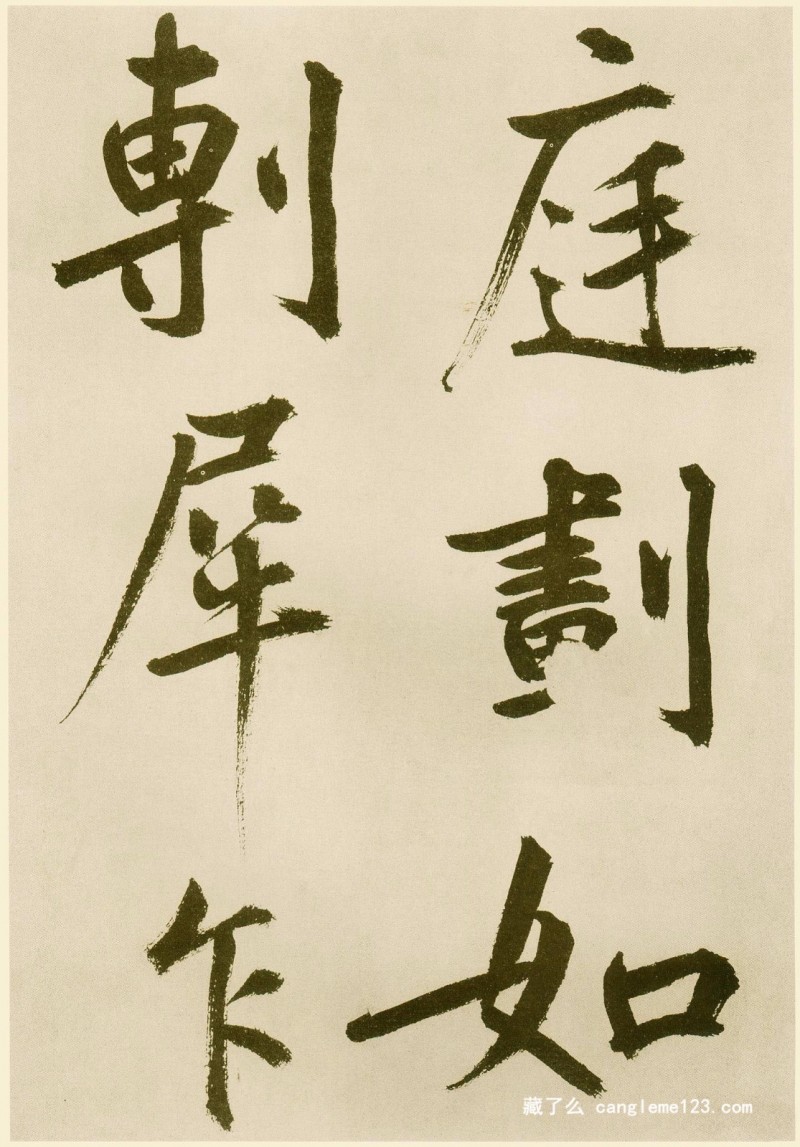 庭劃如
剸犀乍
藏了么 cangleme123.com